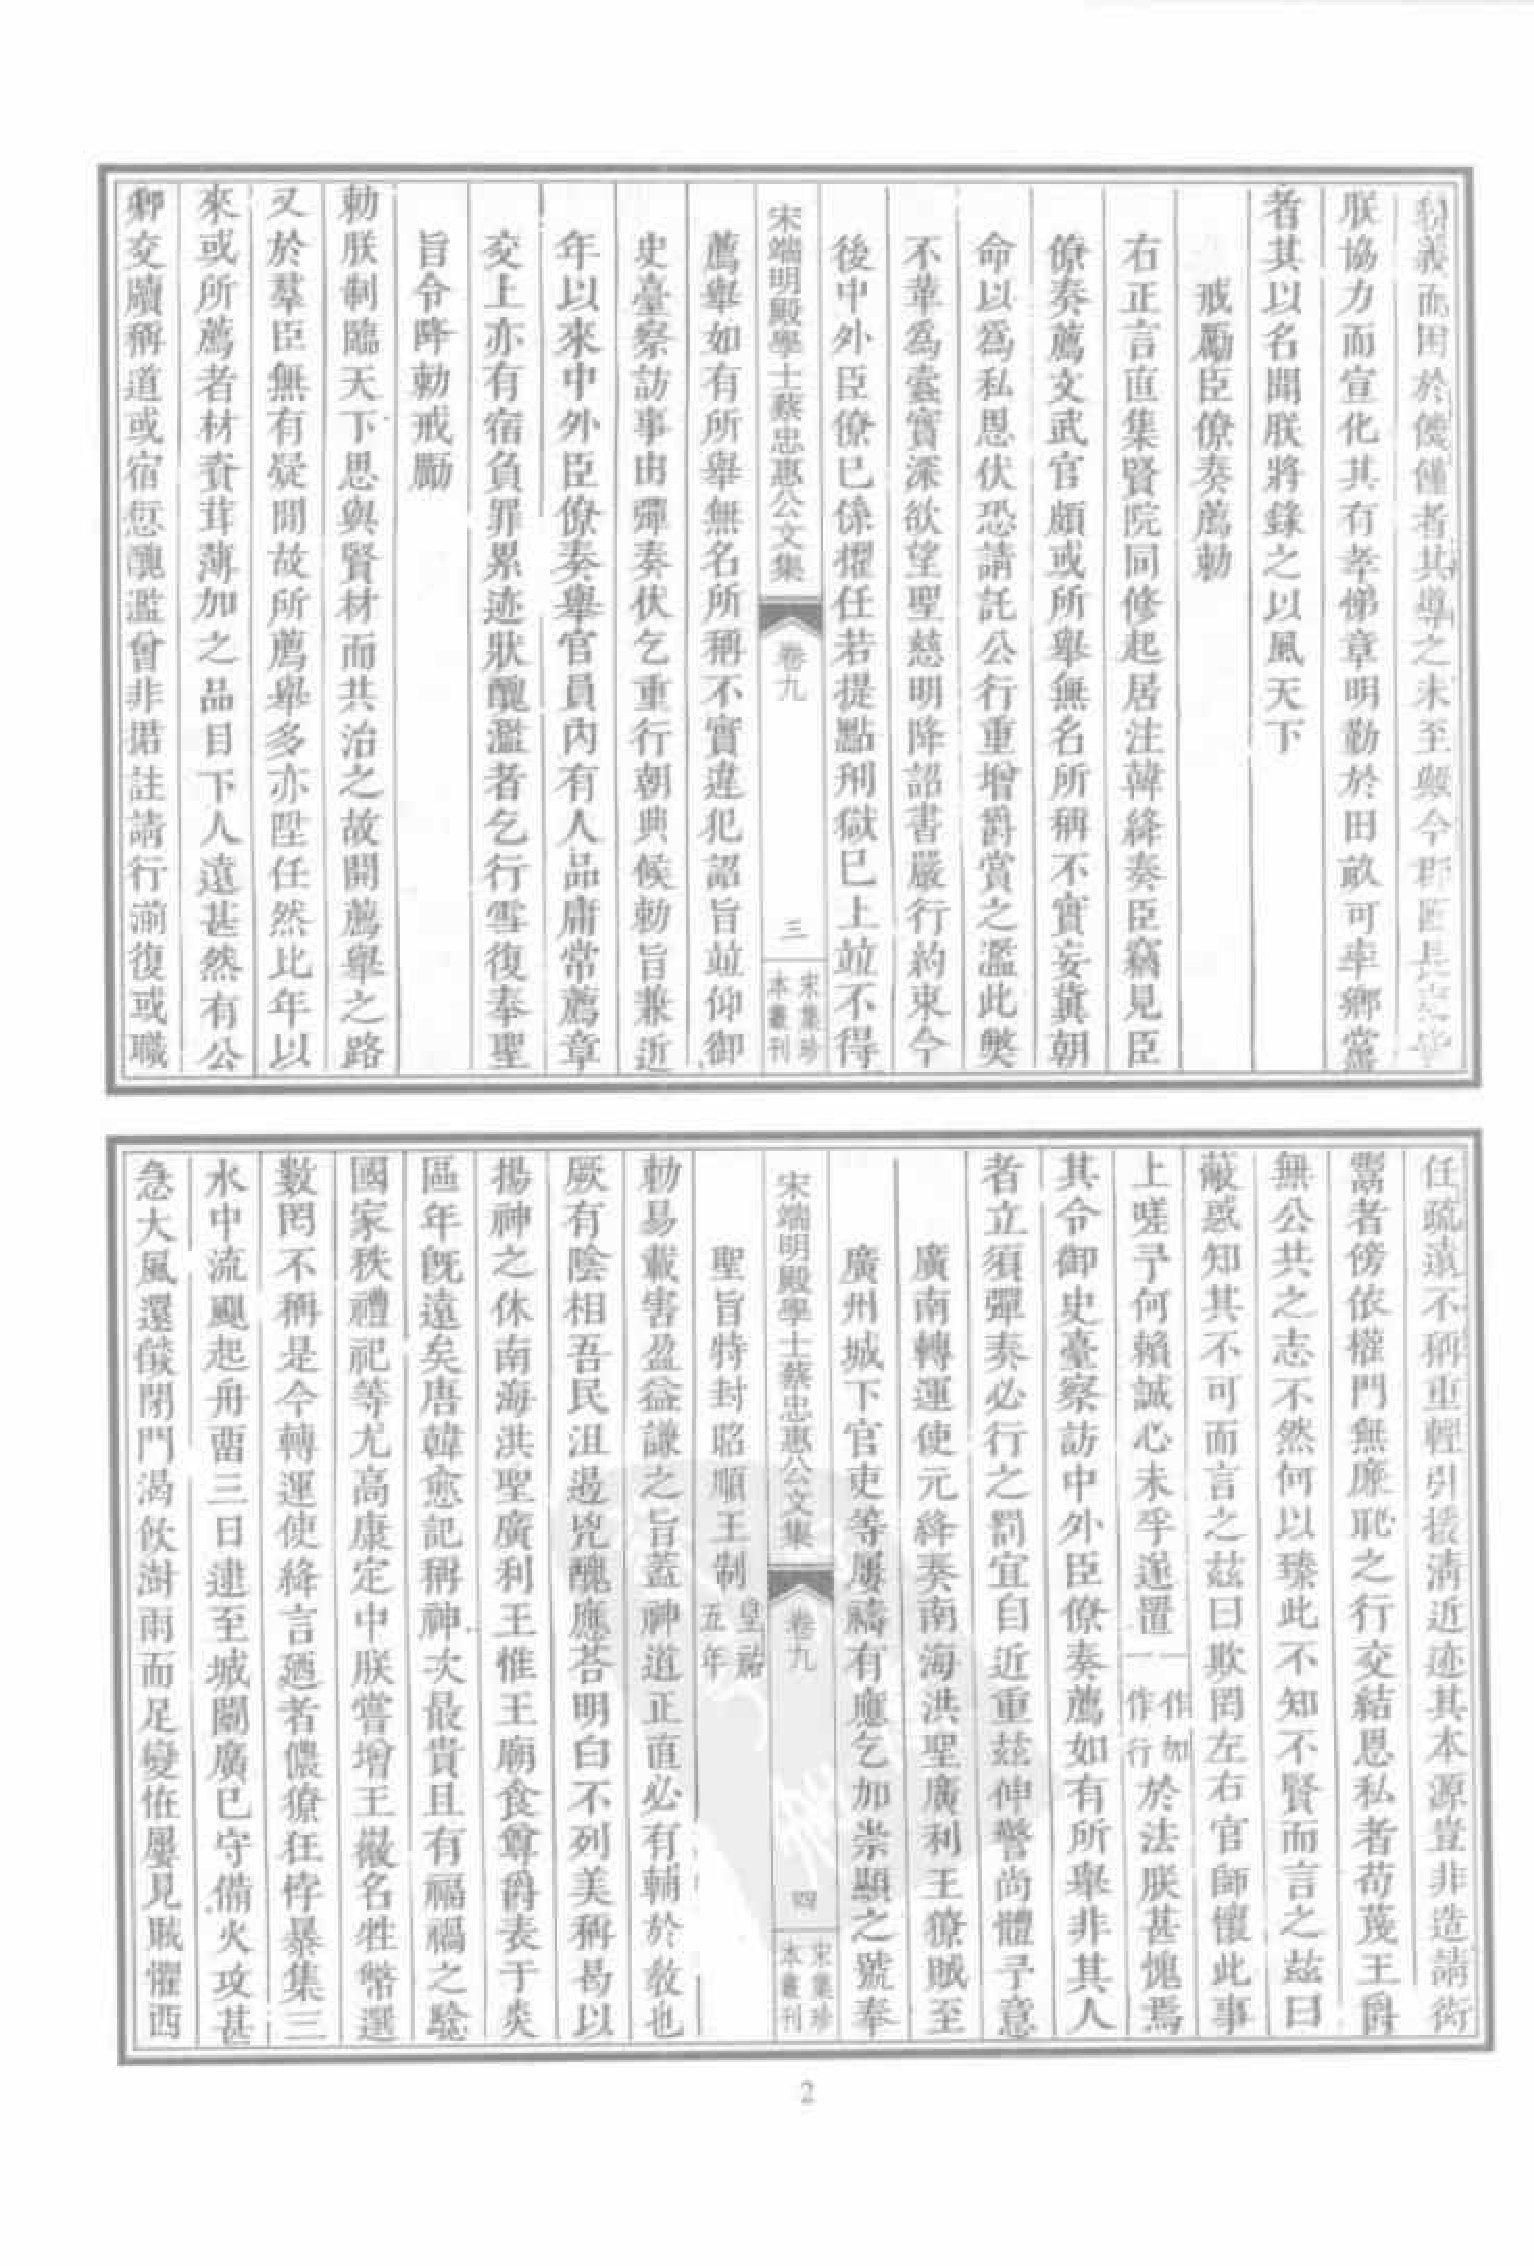 義而困於饑僅者其導之未至與今郡
朕協力而宣化其有孝悌章明勤於田畝可率鄉黨
者其以名聞朕將錄之以風天下
戒勵臣僚奏薦勅
右正言直集賢院同修起居注韓絳奏臣竊見臣
僚奏薦文武官頗或所舉無名所稱不實妄冀朝
命以為私恩伏恐請託公行重增爵賞之濫此獘
不革為蠹實深欲望聖慈明降詔書嚴行約束今
後中外臣僚已係擢任若提點刑獄已上竝不得
宋端明殿學士蔡忠惠公文集 卷九 三 宋集珍本叢刊
薦舉如有所舉無名所稱不實違犯詔旨竝仰御
史臺察訪事由彈奏伏乞重行朝典候勅旨兼近
年以來中外臣僚奏舉官員內有人品庸常薦章
交上亦有宿負罪累迹狀醜濫者乞行雪復奉聖
旨令降勅戒勵
勅朕制臨天下思與賢材而共治之故開薦舉之路
又於羣臣無有疑閒故所薦舉多亦陞任然比年以
來或所薦者材資茸薄加之品目下人遠甚然有公
卿交牘稱道或宿愆醜濫曾非詿請行湔復或職
任疏遠不稱重輕引援清近迹其本源豈非造請銜
鬻者傍依權門無廉恥之行交結恩私者苟茂王爵
無公共之志不然何以臻此不知不賢而言之茲曰
蔽惑知其不可而言之茲曰欺罔左右官師懷此事
上嗟予何賴誠心未孚遂置一作加一作行於法朕甚愧焉
其令御史臺察訪中外臣僚奏薦如有所舉非其人
者立須彈奏必行之罰宜自近重茲伸警尚體予意
廣南轉運使元絳奏南海洪聖廣利王獠賊至
廣州城下官吏等屢禱有應乞加崇顯之號奉
宋端明殿學士蔡忠惠公文集 卷九 四 宋集珍本叢刊
聖旨特封昭順王制皇祐五年
勅易載害盈益謙之旨蓋神道正直必有輔於教也
厥有陰相吾民沮遏兇醜應荅明白不列美稱曷以
揚神之休南海洪聖廣利王惟王廟食尊爵表于炎
區年旣遠矣唐韓愈記稱神次最貴且有福禍之驗
國家秩禮祀等尤高康定中朕嘗增王徽名牲幣選
數罔不稱是今轉運使絳言廼者儂獠狂悖暴集三
水中流颶起舟畱三日逮至城闉廣已守備火攻甚
急大風還熖閉門渴飲澍雨而足變恠屢見賊懼西